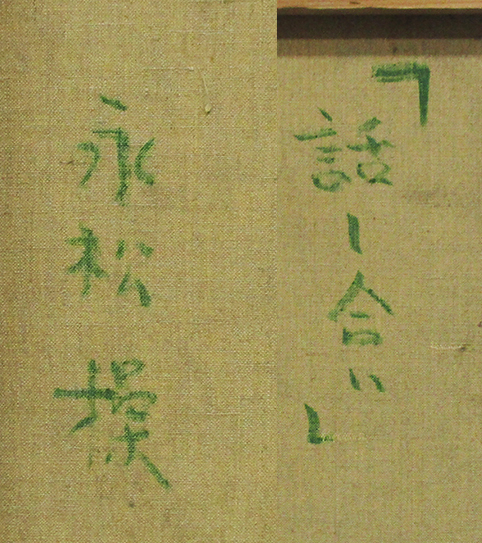 「話し合い」
永松 操